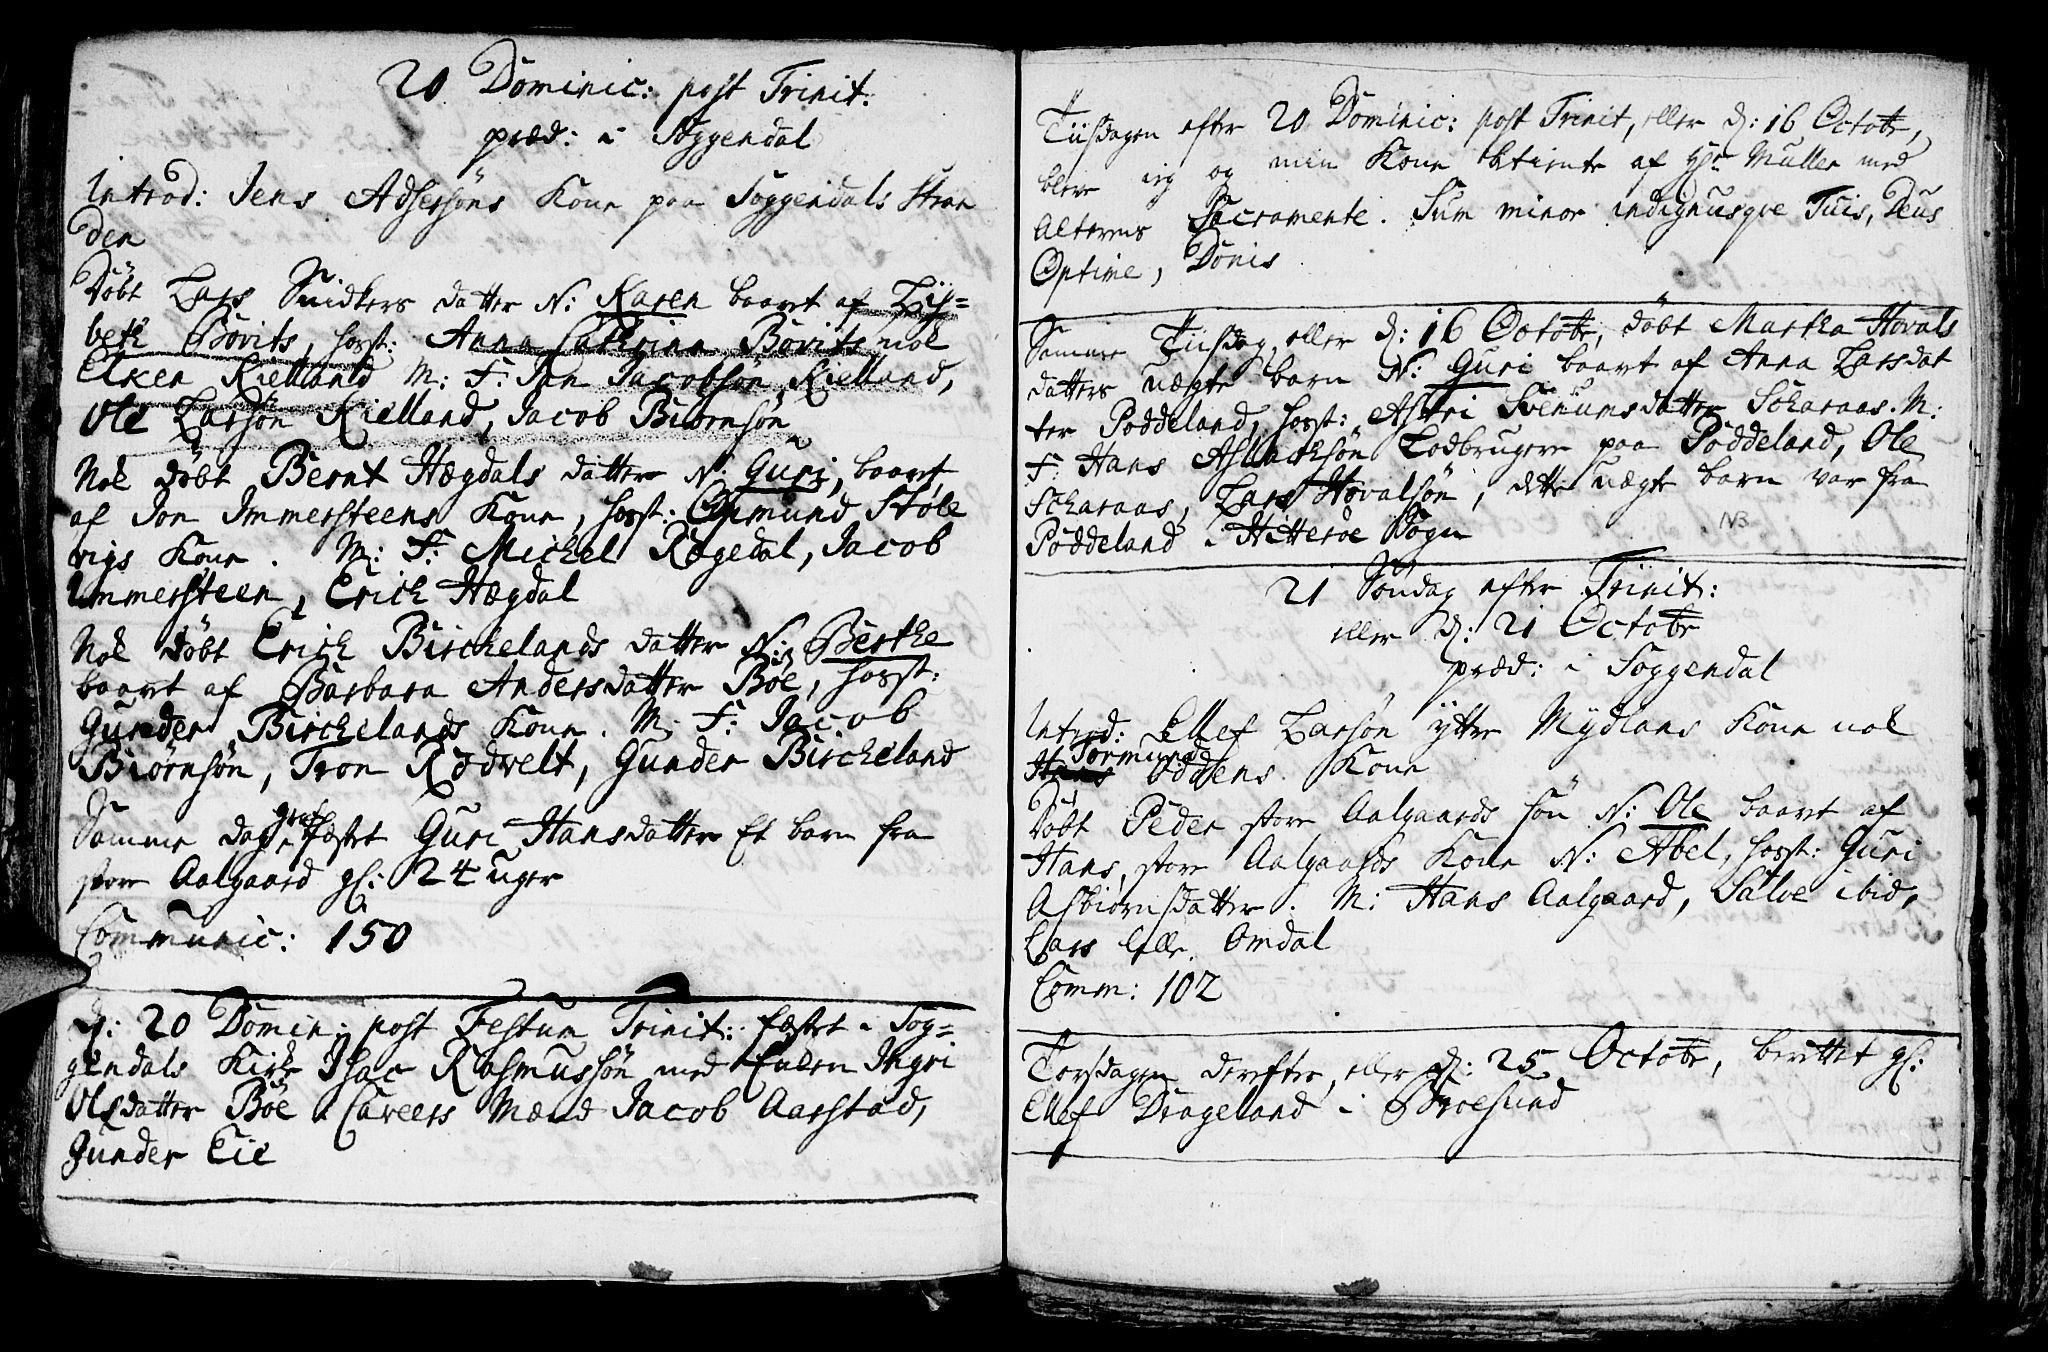 20 Dominic: post Trinit:
præd: i Soggendal
Introd: Jens Adsersöns Kone paa Soggendals Stran
den
Döbt Lars Snidkers datter N: Karen baaret af Lis=
beth Bovits, host: Anna Cathrina Bovits nok
Elken Kielland M: F: Jan Jacobsön Kielland,
Ole Larsön Kielland, Jacob Biörnsön
Nok döbt Bernt Hægdals datter N: Guri, baaret
af Jon Immersteens Kone, host: Osmund Stöle
vigs Kone. M: F: Michel Rægedal, Jacob
Immersteen, Erich Hægdal
Nok döbt Erich Birchelands datter N: Berthe
baaret af Barbara Andersdatter Böe, host:
Gunder Birchelands Kone. M: F: Jacob
Biörnsön, Tron Rödvelt, Gunder Bircheland
Samme dag Guri Hansdatter Et barn fra
store Aalgaard gl: 24 uger
Communic: 150
d: 20 Domin: post Festum Trinit: fæstet i Sog=
gendals Kirke Isac Rasmussön med Enken Ingri
Olsdatter Böe Caveers Mænd Jacob Aarstad,
Gunder Eie
Tiisdagen efter 20 Dominic: post Trinit, eller d: 16 Octobr,
bleve ieg og min Kone betiente af Hr: Muller med
Alterens Sacramente. Sum minor indignusqve Tuis, Deus
Optime, Donis
Samme Tiisdag, eller d: 16 Octobr, döbt Martha Hovals
datters uægte barn N: Guri baaret af Anna Larsdat
ter Poddeland, host: Astri Svenumsdatter Scharaas. M:
F: Hans Aslachsön Lodbrugere paa Poddeland, Ole
Scharaas, Lars Hovalsön, dette uægte barn var fra
Poddeland i Hitteröe Sogn
NB
21 Söndag efter Trinit:
eller d: 21 Octobr
præd: i Soggendal
Introd: Ellef Larsön yttre Mydlans Kone nok
Tormund
Hans Oddens Kone
Döbt Peder store Aalgaards sön N: Ole baaret af
Hans, store Aalgaards Kone N: Abel, host: Guri
Asbiörnsdatter. M: Hans Aalgaard, Salve ibid,
Lars lille Omdal
Comm: 102
Torsdagen derefter, eller d: 25 Octobr, berettet gl:
Ellef Drageland i